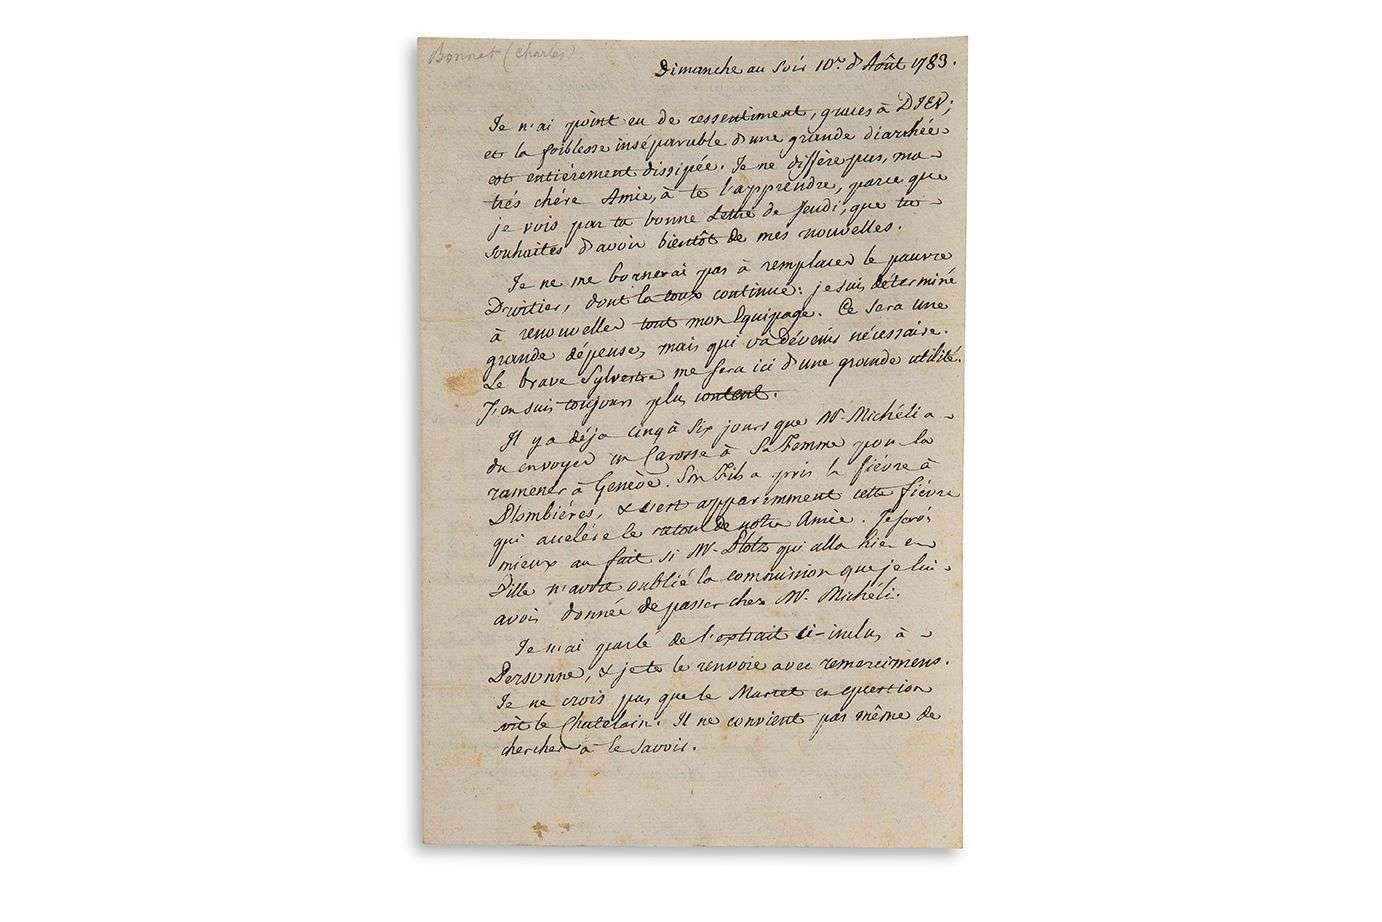 Bonnet (Charles)
Dimanche au soir 10e. d'Août 1783.
Je n'ai point eu de ressentiment, graces à DIEU;
et la foiblesse inséparable d'une grande diarrhée
est entiérement dissipée. Je ne différe pas, ma
trés chére Amie, à te l'apprendre, parce que
je vois par ta bonne Lettre de Jeudi, que tu
souhaites d'avoir bientôt de mes nouvelles.
Je ne me bornerai pas à remplacer le pauvre
Droitier, dont la toux continue: je suis déterminé
à renouveller tout mon Equipage. Ce sera une
grande dépense, mais qui va dévenir nécessaire.
Le brave Sylvestre me sera ici d'une grande utilité.
J'en suis toujours plus content.
Il y a déja cinq à six jours que Mr. Michéli a
du envoyer un Carosse à Sa Femme pour la
ramener à Genève. Son Fils a pris la fiévre à
Plombiéres, & c'est apparemment cette fiévre
qui accelére le retour de notre Amie. Je serois
mieux au fait si Mr. Plotz qui alla hier en
Ville n'avoit oublié la commission que je lui
avois donnée de passer chez Mr. Michéli.
Je n'ai parlé de l'extrait ci-inclus à
Personne, & je te le renvoie avec remercimens.
Je ne crois pas que le en question
soit le Chatelain. Il ne convient pas même de
chercher à le savoir.